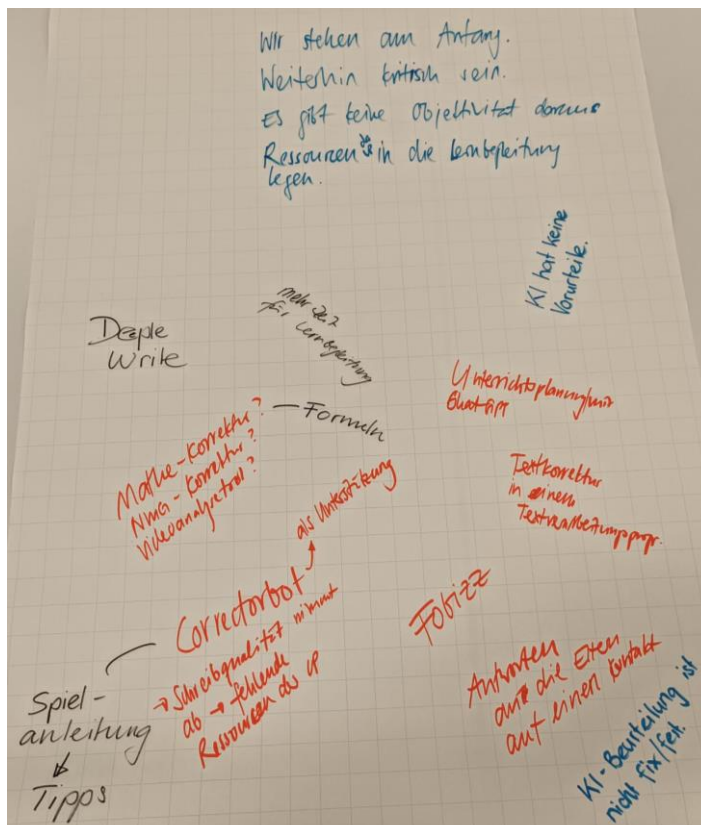 Wir stehen am Anfang.
Weiterhin kritisch sein.
Es gibt keine Objektivität daraus
Ressourcen in die Lernbegleitung
legen.
KI hat keine
Vorurteile.
mehr Zeit
für Lernbegleitung
Deeple
Write
Unterrichtsplanung/mit
— Formeln
Mathe-Korrektur?
NMG-Korrektur?
Videoanalysetool?
Textkorrektur
in einem
Textverarbeitungsprogr.
als Unterstützung
Correctorbot
→ Schreibqualität nimmt
ab → fehlende
Ressourcen als LP
Fobizz
Antworten
an die Eltern
auf einen Kontakt
Spiel-
anleitung
↓
Tipps
KI-Beurteilung ist
nicht fix/fest.